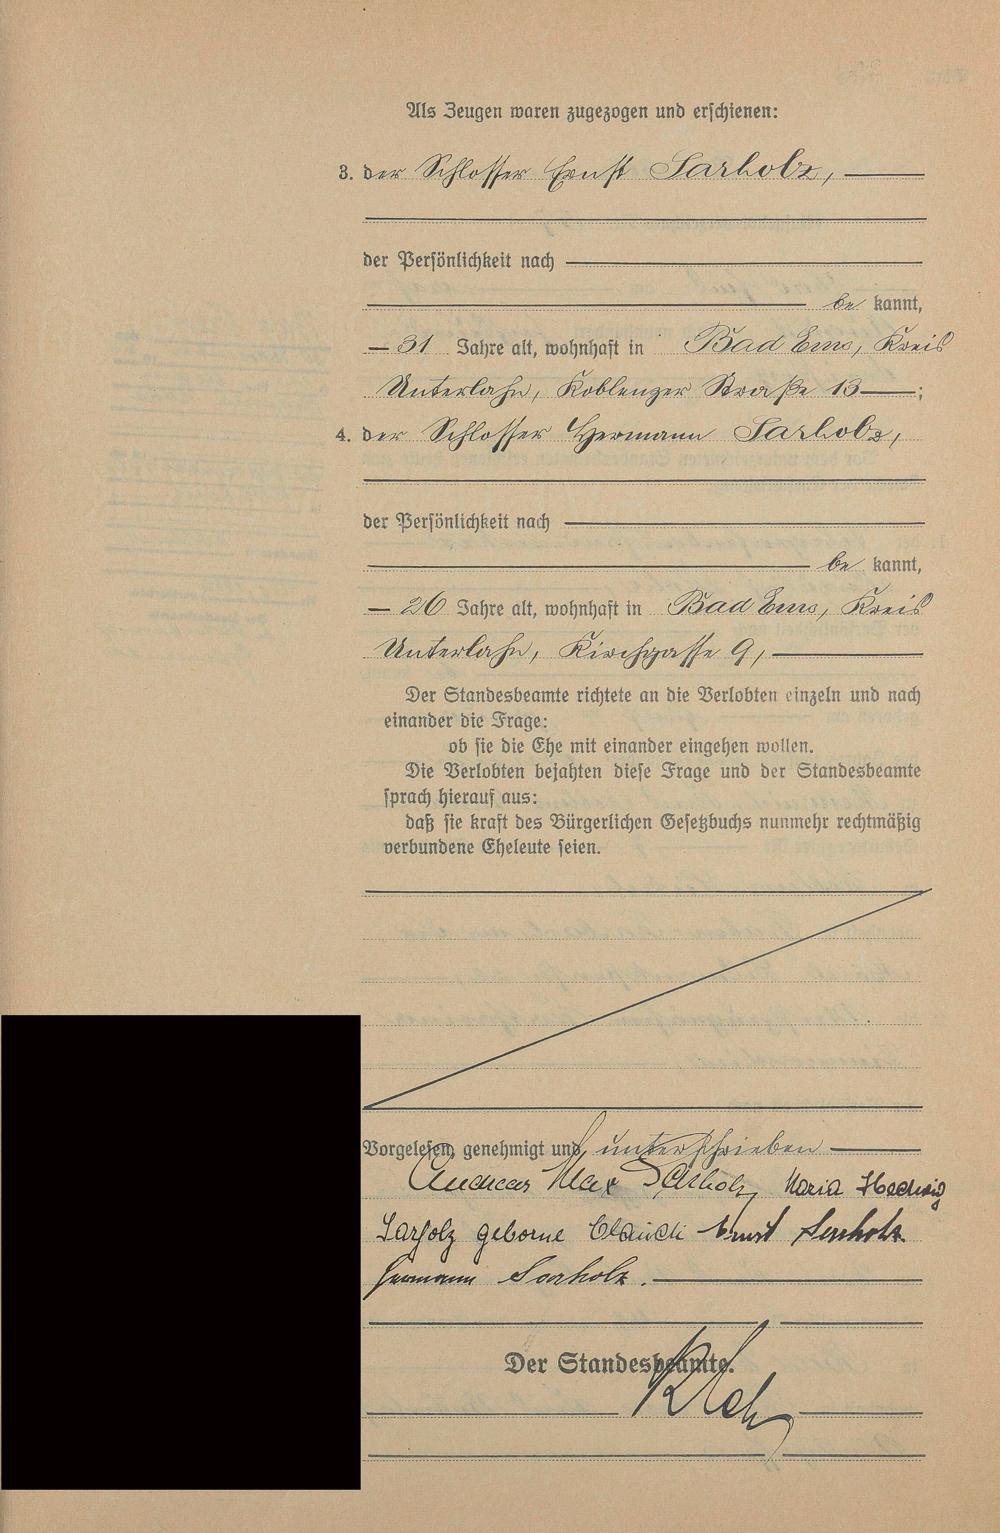 Als Zeugen waren zugezogen und erschienen:
3. der Schlosser Ernst Sarholz,
der Persönlichkeit nach
be kannt,
31 Jahre alt, wohnhaft in Bad Ems, Kreis
Unterlahn, Koblenzer Straße 13 ;
4. der Schlosser Hermann Sarholz,
der Persönlichkeit nach
be kannt,
26 Jahre alt, wohnhaft in Bad Ems, Kreis
Unterlahn, Kirchgasse 9,
Der Standesbeamte richtete an die Verlobten einzeln und nach
einander die Frage:
ob sie die Ehe mit einander eingehen wollen.
Die Verlobten bejahten diese Frage und der Standesbeamte
sprach hierauf aus:
daß sie kraft des Bürgerlichen Gesetzbuchs nunmehr rechtmäßig
verbundene Eheleute seien.
Vorgelesen, genehmigt und unterschrieben
Andreas Max Sarholz Maria Hedwig
Sarholz geborne Ernst Sarholz
Hermann Sarholz.
Der Standesbeamte.